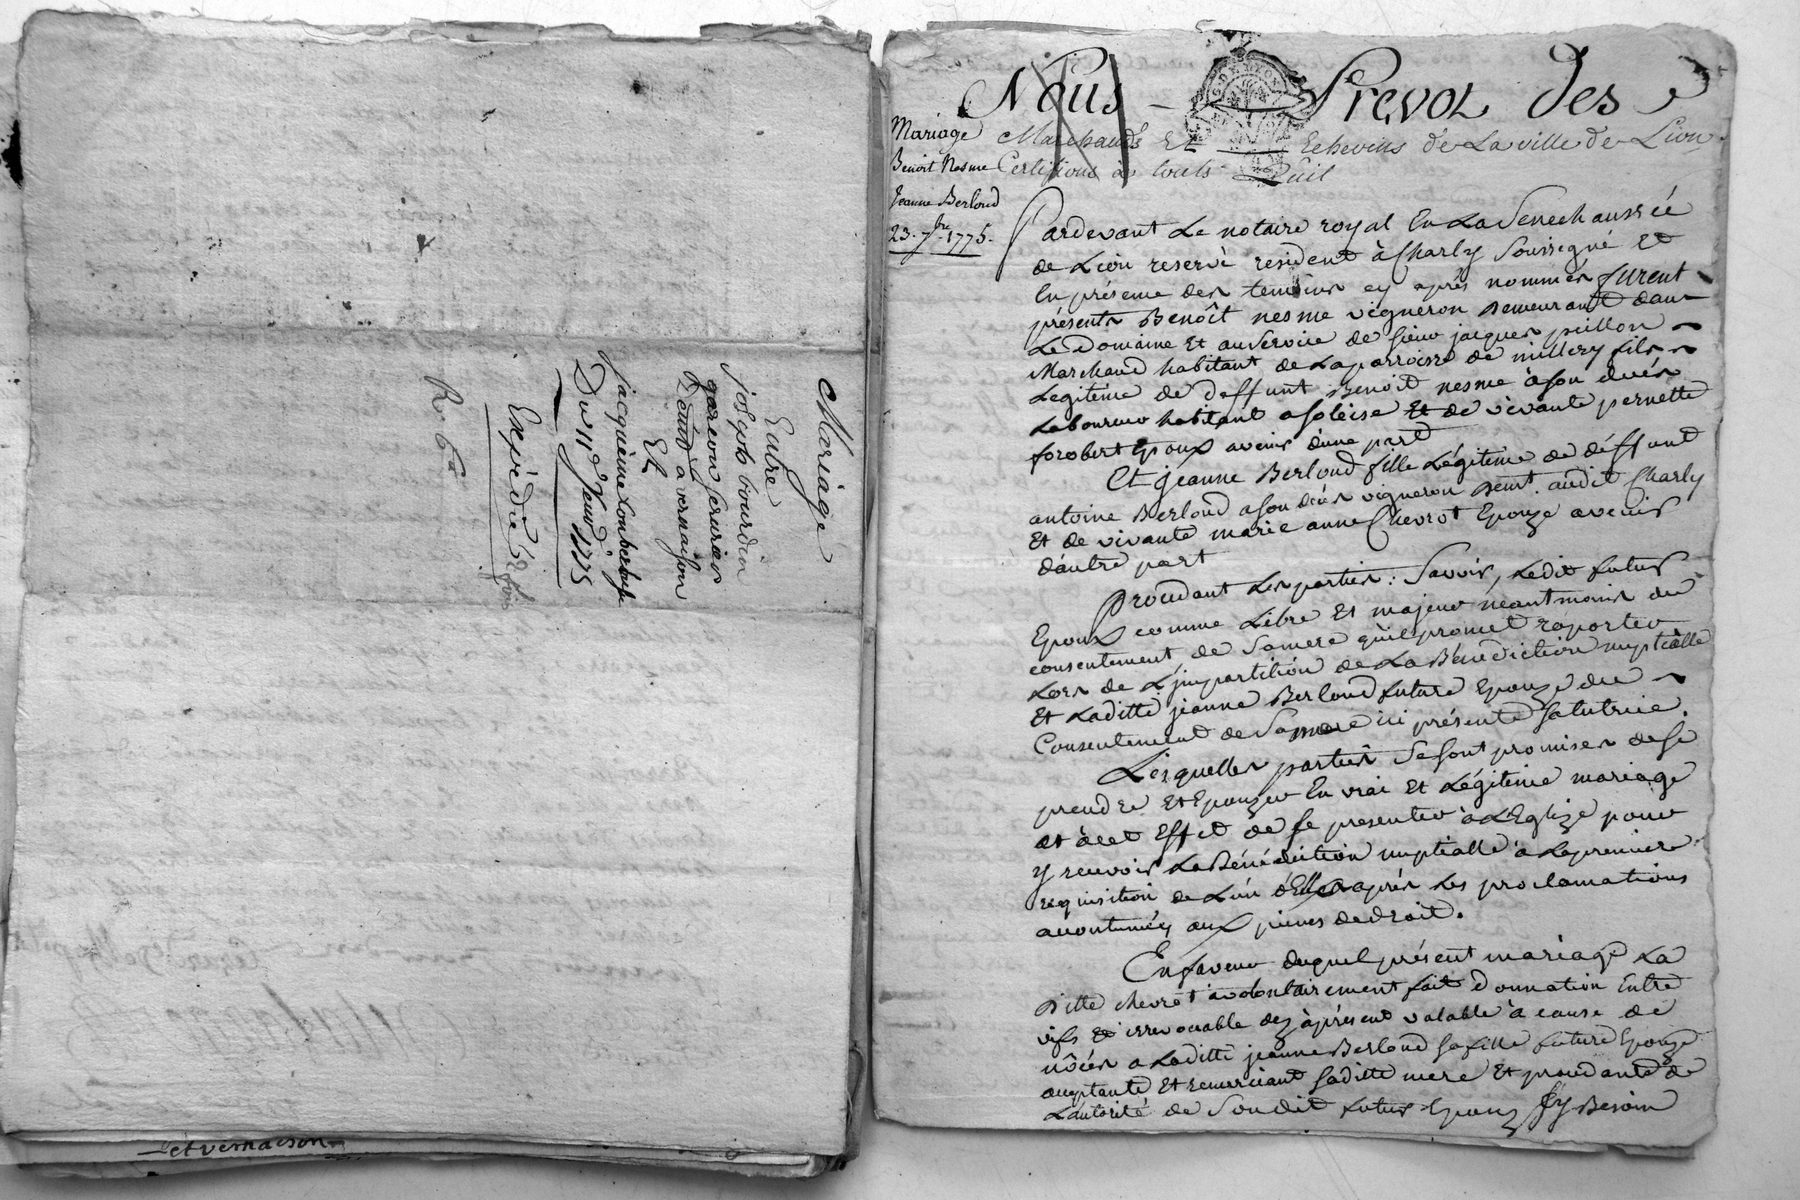 Mariage
Entre
joseph bourdin
garcon serurier
Demt à vernaison
Et
jacquème
Du 11e Janvr 1775
Expédié 2 fois
R 6e
et vernaison
Nous Prevot des
Marchands Et Echevins de La ville de Lion
Certifions à touts Quil
Mariage
Benoit Nesme
Jeanne Berloud
23. 7bre 1775.
Pardevant Le notaire royal En La Senechaussée
de Lion reservé resident à Charly Soussigné Et
En présence des temoins cy après nommés furent
présents Benoît nesme vigneron Demeurant dans
Le Domaine Et au Service de sieur jacques peillon
Marchand habitant de La parroisse de millery fils
Legitime de deffunt Benoit nesme a son décès
Laboureur habitant a soleise Et de vivante pernette
forobert Epoux avenir d'une part
Et jeanne Berloud fille Légitime de déffunt
antoine Berloud a son décès vigneron Demt. audit Charly
Et de vivante marie anne Chevrot Epouze avenir
d'autre part
Procedant Les parties: Savoir, Ledit futur
Epoux comme Libre Et majeur néantmoins du
consentement de Sa mere qu'il promet raporter
Lors de L'jmpartition de La Bénédiction nuptialle
Et Laditte jeanne Berloud future Epouze du
Consentement de Sa mere ici présente sa tutrice.
Lesquelles parties Se sont promises de se
prendre Et Epouzer En vrai Et Légitime mariage
et à cet Effet de se presenter à L'Eglize pour
y recevoir La Bénédiction nuptialle à La premiere
requisition de L'un d'Eux après Les proclamations
accoutumées aux peines de droit.
En faveur duquel présent mariage La
Ditte chevrot a volontairement fait Donnation Entre
vifs Et irrevocable dez à présent valable à cause de
nôces a Laditte jeanne Berloud sa fille future Epouze
acceptante Et remerciant saditte mere Et procedante de
L'autorité de Sondit futur Epoux sy Besoin